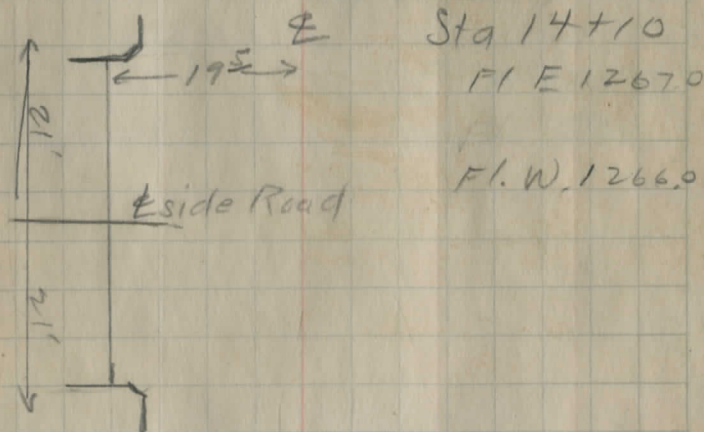 ℄ Sta 14+10
19 5
Fl E 1267.0
Fl. W. 1266.0
℄ side Road